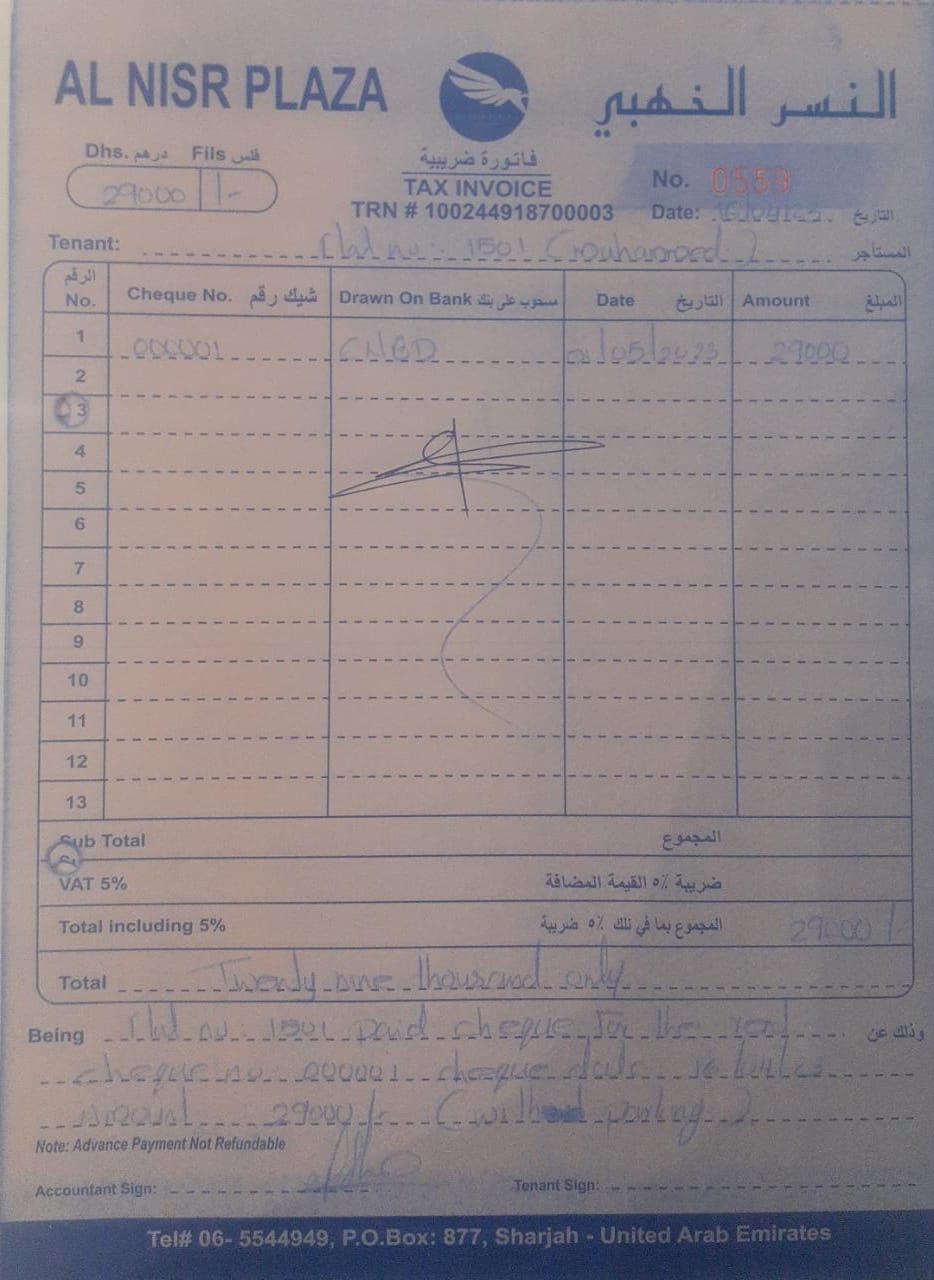 AL NISR PLAZA
النسر الذهبي
Dhs. درهم Fils فلس
29000 /-
فاتورة ضريبية
TAX INVOICE
TRN # 100244918700003
No. 0559
Date: التاريخ
Tenant: Flat no :- 1501 المستأجر
الرقم No. Cheque No. شيك رقم Drawn On Bank مسحوب على بنك Date التاريخ Amount المبلغ
1 000001 ENBD 01/05/2023 29000
2
3
4
5
6
7
8
9
10
11
12
13
Sub Total المجموع
VAT 5% ضريبة ٥% القيمة المضافة
Total including 5% المجموع بما في ذلك ٥% ضريبة 29000 /-
Total Twenty nine thousand only
Being Flat no :- 1501 paid cheque for the rent وذلك عن
cheque no 000001 cheque date
Amount 29000/- parking )
Note: Advance Payment Not Refundable
Accountant Sign: Tenant Sign:
Tel# 06- 5544949, P.O.Box: 877, Sharjah - United Arab Emirates